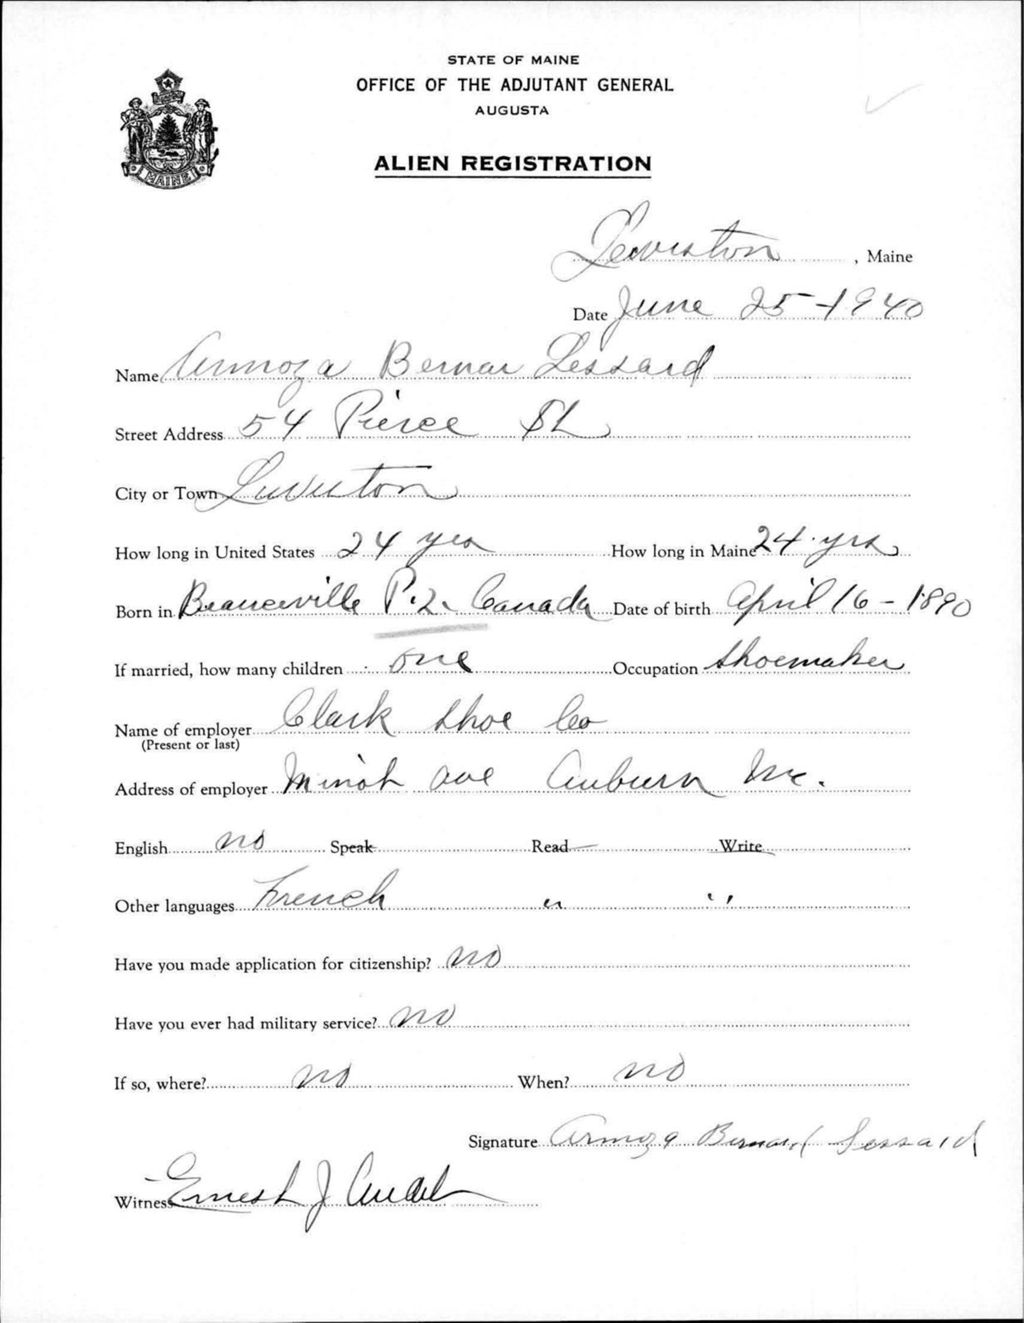 STATE OF MAINE
OFFICE OF THE ADJUTANT GENERAL
AUGUSTA
MAINE
ALIEN REGISTRATION
Lewiston, Maine
Date June 25-1940
Name Armoza Bernar Lessard
Street Address 54 Pierce St
City or Town Lewiston
How long in United States 24 yrs How long in Maine 24 yrs
Born in Beauceville P.Q. Canada Date of birth April 16-1890
If married, how many children one Occupation Shoemaker
Name of employer Clark Shoe Co
(Present or last)
Address of employer Minot ave Auburn Me.
English no Speak Read Write
Other languages French " "
Have you made application for citizenship? no
Have you ever had military service? no
If so, where? no When? no
Signature Armoza Bernard Lessard
Witness Ernest J